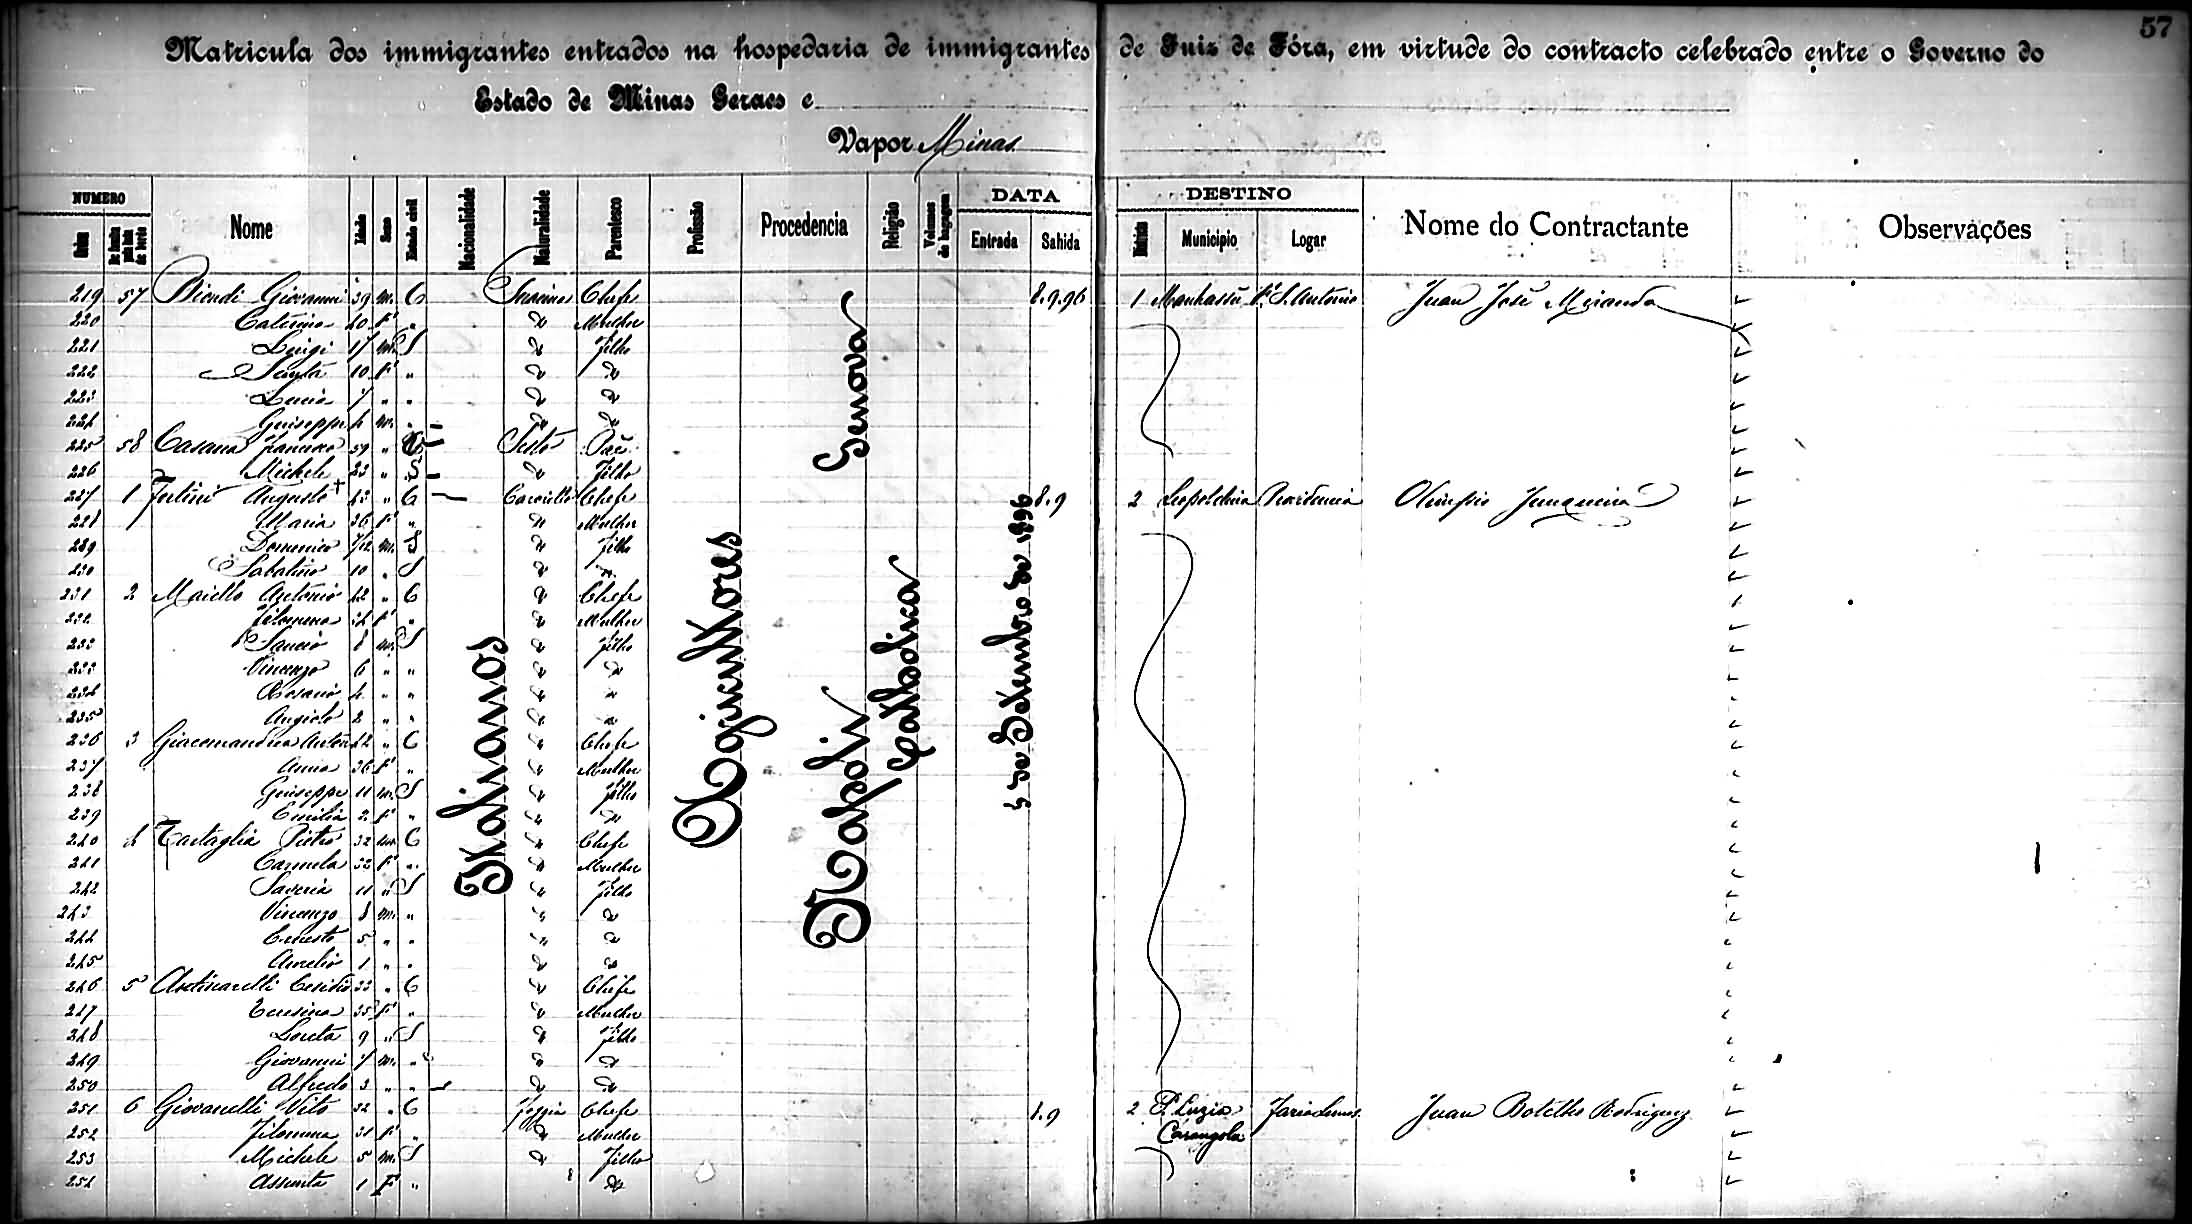 57
Matricula dos immigrantes entrados na hospedaria de immigrantes de Juiz de Fóra, em virtude do contracto celebrado entre o Governo do
Estado de Minas Geraes e
Vapor Minas
NUMERO Nome Idade Sexo Estado civil Nacionalidade Naturalidade Parentesco Profissão Procedencia Religião Volumes de bagagem DATA Entrada Sahida DESTINO Municipio Logar Nome do Contractante Observações
Italianos
Agricultores
Genova
Napoli
Catholica
5 de Setembro de 1896
219 57 Biondi Giovanni 39 m. C Chefe 8.9.96 1 Manhassú S. Antonio Juan José Miranda
220 Caterina 40 F " " Mulher
221 Luigi 17 m. S " Filho
222 10 F " " "
223 Lucia 7 " " " "
224 Giuseppe 4 m. " " "
225 58 Casana 59 " Pae
226 Michele 23 " S " Filho
227 1 Fortini Augusto 43 " C Chefe 8.9 2 Leopoldina Providencia Olimpio Junqueira
228 Maria 36 F " " Mulher
229 Domenico 7/12 m. S " Filho
230 Sabatino 10 " S " "
231 2 Maiello Antonio 42 " C " Chefe
232 Filomena 34 F " " Mulher
233 8 m. S " Filho
233 Vincenzo 6 " " " "
234 Rosario 4 " " " "
235 Angiolo 2 " " " "
236 3 Giacomandrea Anton 42 " C " Chefe
237 Anna 36 F " " Mulher
238 Giuseppe 11 m. S " Filho
239 Emilia 2 F " " "
240 4 Tartaglia Pietro 32 m. C " Chefe
241 Carmela 32 F " " Mulher
242 Saveria 11 " S " Filho
243 Vincenzo 8 m. " " "
244 Ernesto 5 " " " "
245 Aurelio 1 " " " "
246 5 33 " C " Chefe
247 Teresina 35 F " " Mulher
248 Loreta 9 " S " Filho
249 Giovanni 7 m. " " "
250 Alfredo 3 " " " "
251 6 Giovanelli Vito 32 " C Foggia Chefe 8.9 2 S. Luzia Faria Lemos Juan Botelho Rodriguez
Carangola
252 Filomena 31 F " " Mulher
253 Michele 5 m. S " Filho
254 Assunta 1 F " "